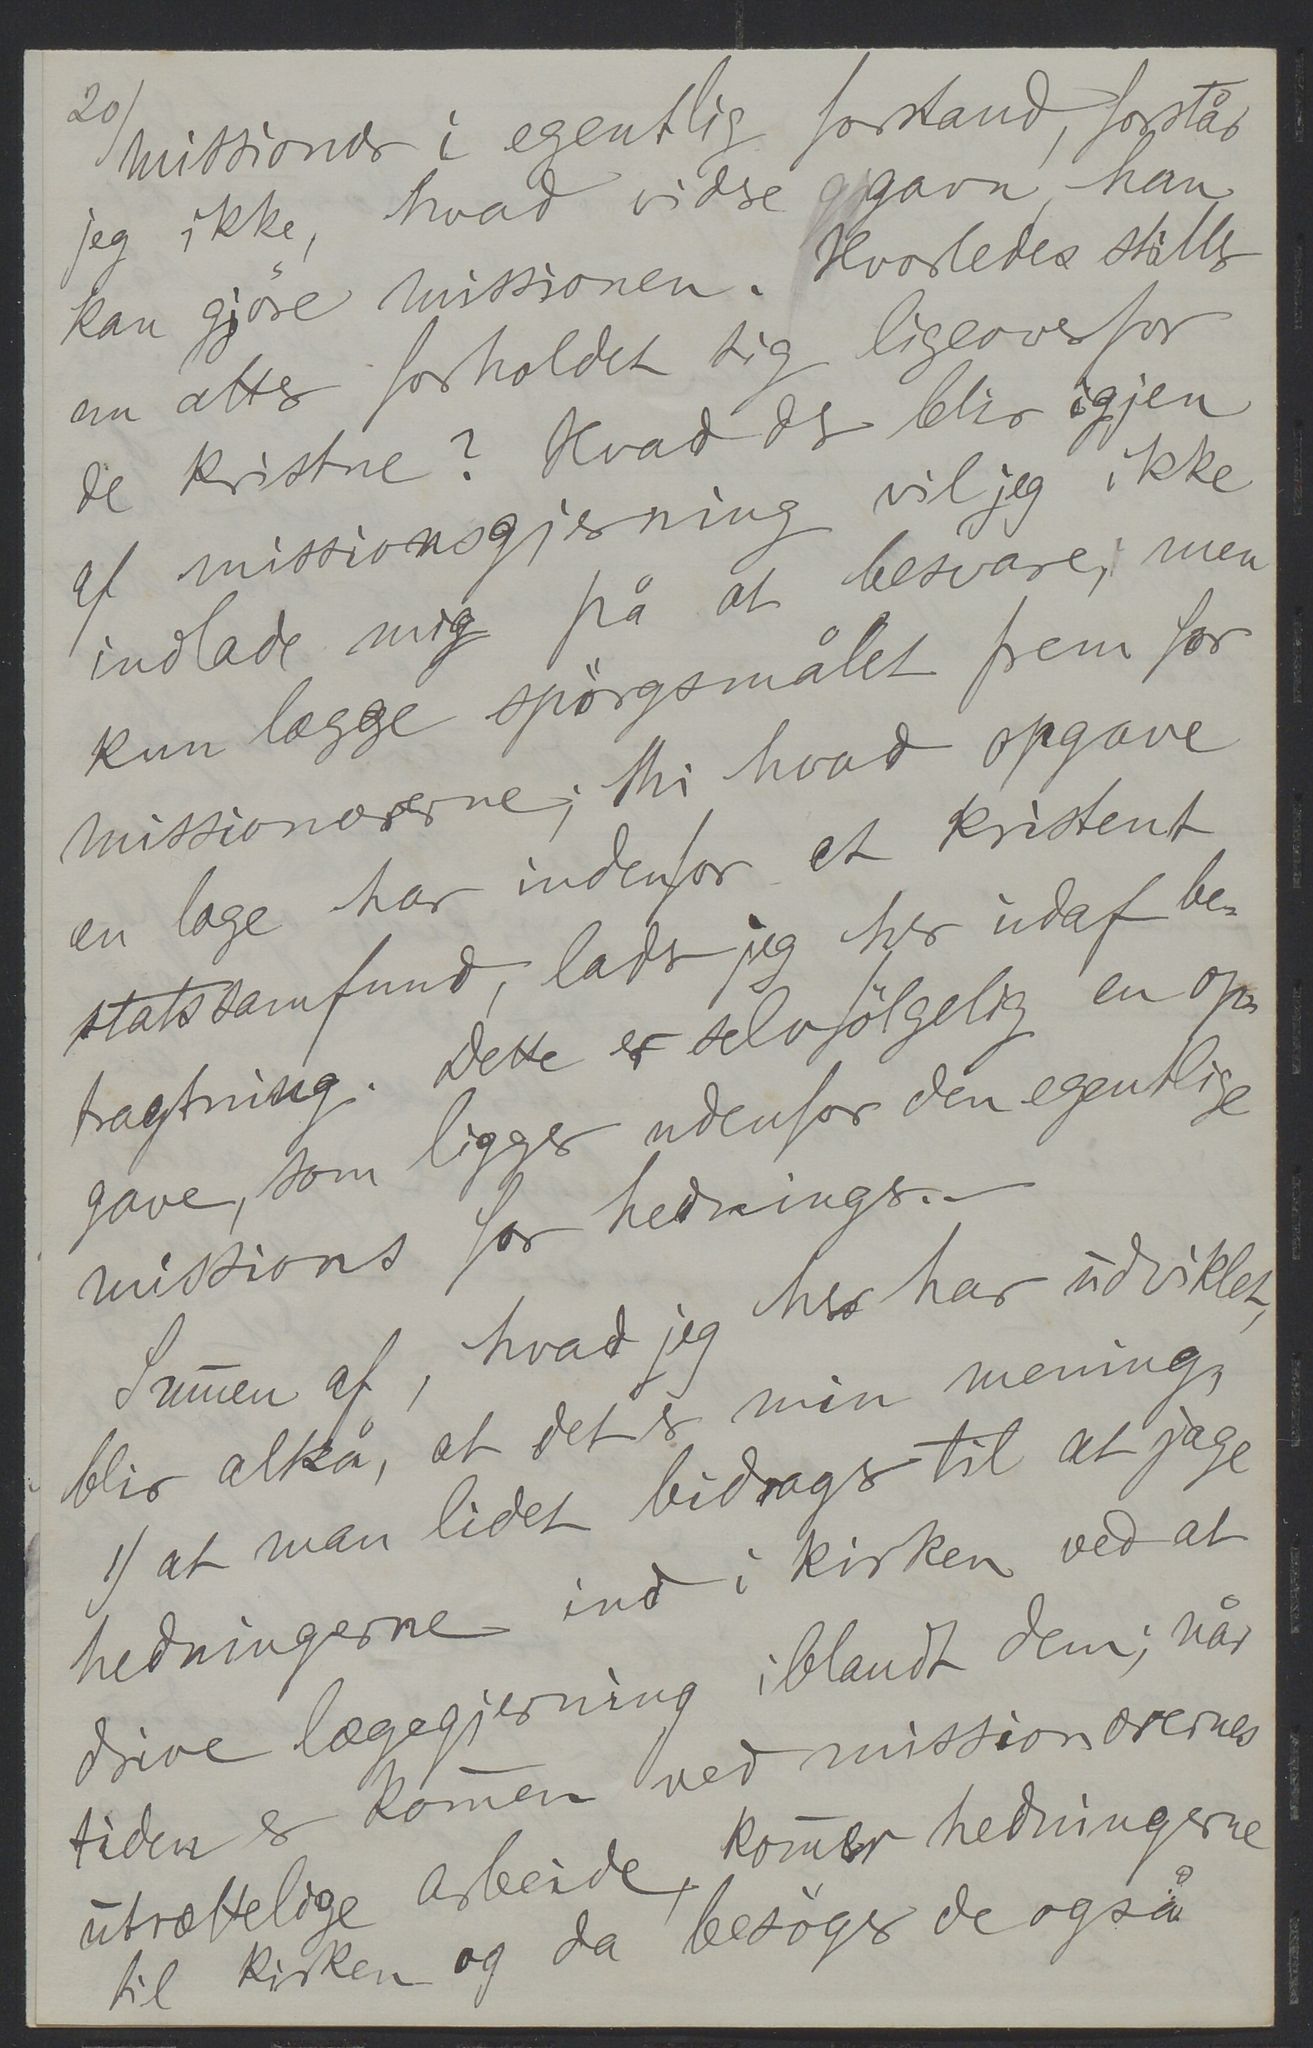 20/
missionær i egentlig forstand, forstår
jeg ikke, hvad vidre gavn han
kan gjöre missionen. Hvorledes stiller
nu atter forholdet sig ligeoverfor
de kristne? Hvad der blir igjen
af missionsgjerning vil jeg ikke
indlade mig på at besvare, men
kun lægge spörgsmålet frem for
missionærerne; thi hvad opgave
en læge har indenfor et kristent
statssamfund, lader jeg her udaf be-
tragtning. Dette er selvfölgelig en op-
gave, som ligger udenfor den egentlige
missions for hedninger. -
Sum̅en af, hvad jeg her har udviklet,
blir altså, at det er min mening,
1/ at man lidet bidrager til at jage
hedningerne ind i kirken ved at
drive lægegjerning iblandt dem; når
tiden er kom̅en ved missionærernes
utrættelige arbeide, kom̅er hedningerne
til kirken og da besöger de også